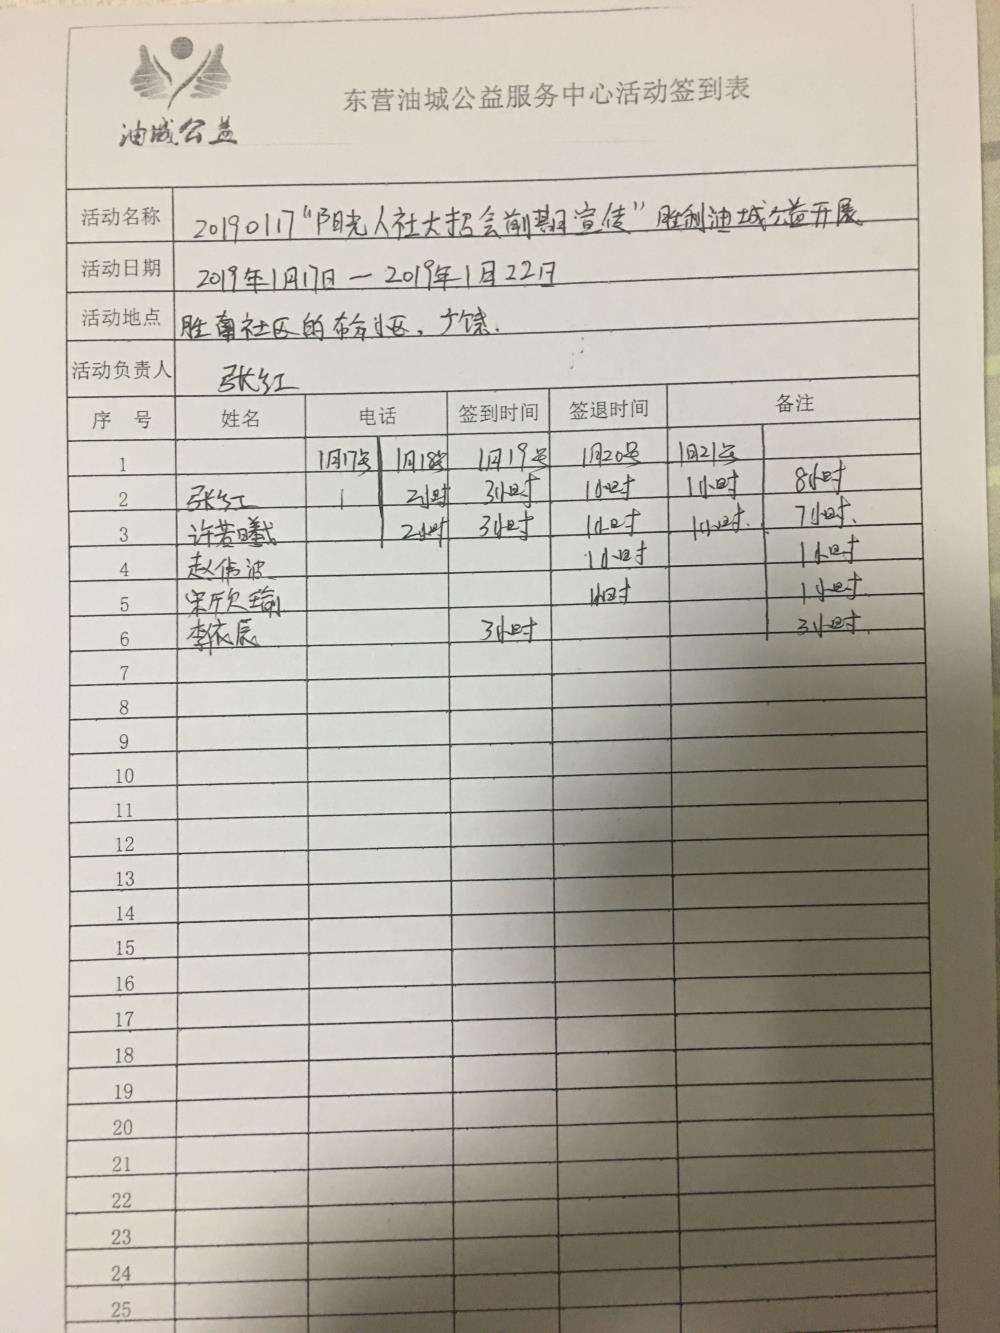 东营油城公益服务中心活动签到表
油城公益
活动名称 20190117“阳光人社大招会前期宣传”胜利油城公益开展
活动日期 2019年1月17日一2019年1月22日
活动地点 胜南社区的各小区、广饶.
活动负责人 张红
序 号 姓名 电话 签到时间 签退时间 备注
1 1月17号 1月18号 1月19号 1月20号 1月21号
2 张红 1 2小时 3小时 1小时 1小时 8小时
3 许若曦 2小时 3小时 1小时 1小时. 7小时.
4 赵伟波 1小时 1小时
5 宋欣瑜 1小时 1小时.
6 李依辰 3小时 3小时.
7
8
9
10
11
12
13
14
15
16
17
18
19
20
21
22
23
24
25